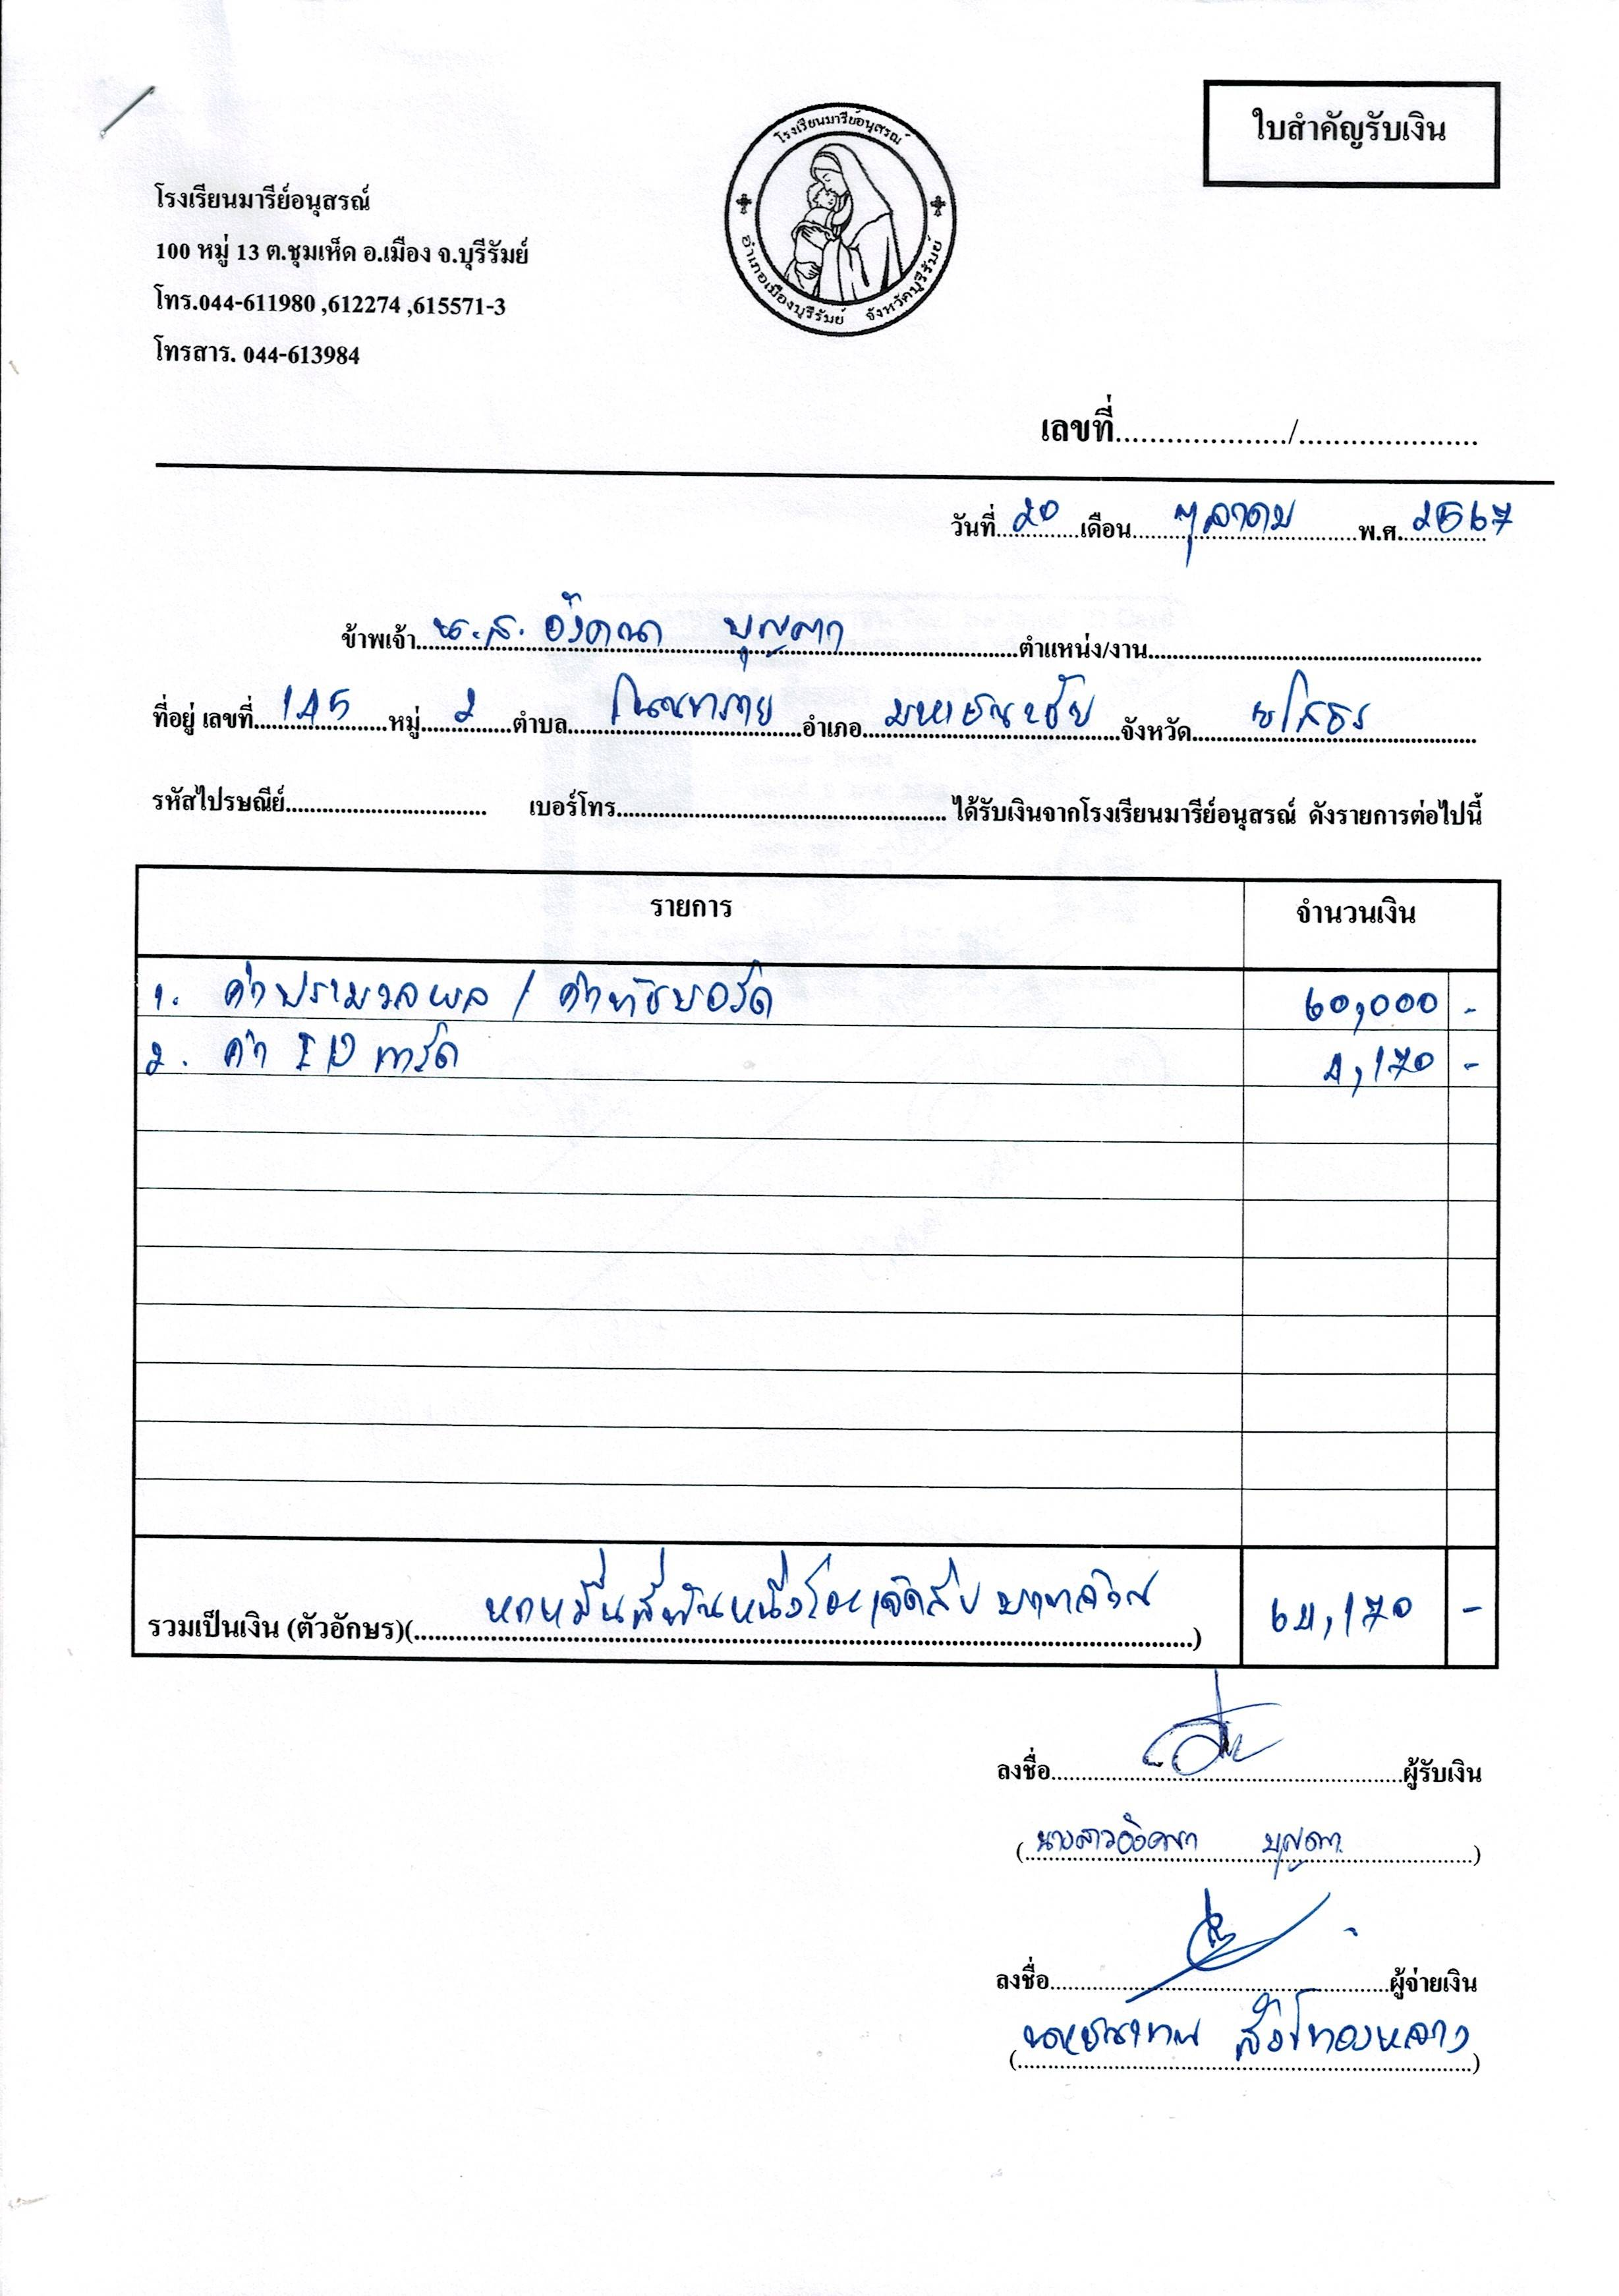 ใบสำคัญรับเงิน
โรงเรียนมารีย์อนุสรณ์
อำเภอเมืองบุรีรัมย์ จังหวัดบุรีรัมย์
โรงเรียนมารีย์อนุสรณ์
100 หมู่ 13 ต.ชุมเห็ด อ.เมือง จ.บุรีรัมย์
โทร.044-611980 ,612274 ,615571-3
โทรสาร. 044-613984
เลขที่..................../.....................
วันที่ 20 เดือน ตุลาคม พ.ศ. 2567
ข้าพเจ้า น.ส. อังคณา บุญตา ตำแหน่ง/งาน
ที่อยู่ เลขที่ 145 หมู่ 2 ตำบล อำเภอ มหาชนะชัย จังหวัด ยโสธร
รหัสไปรษณีย์ เบอร์โทร ได้รับเงินจากโรงเรียนมารีย์อนุสรณ์ ดังรายการต่อไปนี้
รายการ จำนวนเงิน
1. ค่าประมวลผล / ค่าคีย์บอร์ด 60,000 -
2. ค่า ID การ์ด 4,170 -
รวมเป็นเงิน (ตัวอักษร)( หกหมื่นสี่พันหนึ่งร้อยเจ็ดสิบบาทถ้วน ) 64,170 -
ลงชื่อ ผู้รับเงิน
( นางสาวอังคณา บุญตา )
ลงชื่อ ผู้จ่ายเงิน